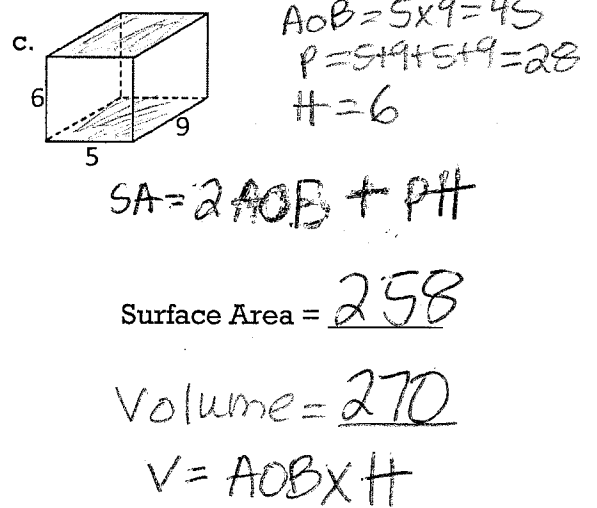 AOB=5x9=45
c.
P=5+9+5+9=28
6
H=6
9
5
SA=2AOB + PH
Surface Area = 258
Volume = 270
V= AOBXH